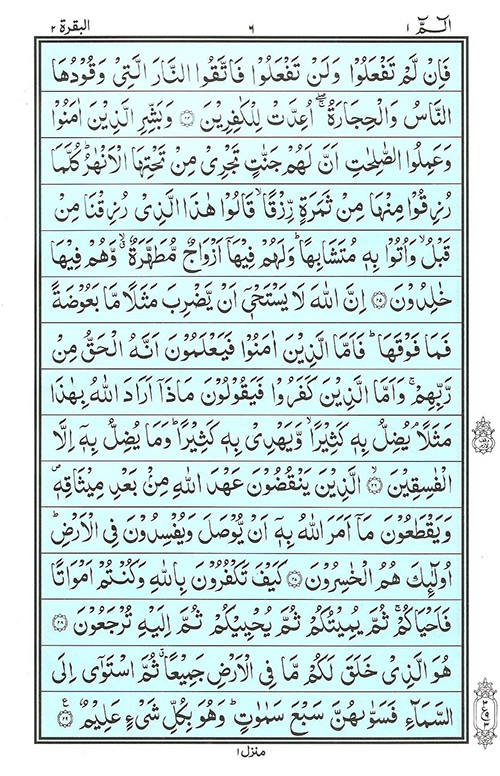 الٓمّٓ ١ ٦ البقرة ٢
فَاِنْ لَّمْ تَفْعَلُوْا وَلَنْ تَفْعَلُوْا فَاتَّقُوا النَّارَ الَّتِیْ وَقُوْدُهَا
النَّاسُ وَالْحِجَارَةُ ۖۚ اُعِدَّتْ لِلْكٰفِرِیْنَ ﴿۲۴﴾ وَبَشِّرِ الَّذِیْنَ اٰمَنُوْا
وَعَمِلُوا الصّٰلِحٰتِ اَنَّ لَهُمْ جَنّٰتٍ تَجْرِیْ مِنْ تَحْتِهَا الْاَنْهٰرُ ؕ كُلَّمَا
رُزِقُوْا مِنْهَا مِنْ ثَمَرَةٍ رِّزْقًا ۙ قَالُوْا هٰذَا الَّذِیْ رُزِقْنَا مِنْ
قَبْلُ ۙ وَاُتُوْا بِهٖ مُتَشَابِهًا ؕ وَلَهُمْ فِیْهَاۤ اَزْوَاجٌ مُّطَهَّرَةٌ ۙۗ وَّهُمْ فِیْهَا
خٰلِدُوْنَ ﴿۲۵﴾ اِنَّ اللّٰهَ لَا یَسْتَحْیٖۤ اَنْ یَّضْرِبَ مَثَلًا مَّا بَعُوْضَةً
فَمَا فَوْقَهَا ؕ فَاَمَّا الَّذِیْنَ اٰمَنُوْا فَیَعْلَمُوْنَ اَنَّهُ الْحَقُّ مِنْ
رَّبِّهِمْ ۚ وَاَمَّا الَّذِیْنَ كَفَرُوْا فَیَقُوْلُوْنَ مَاذَاۤ اَرَادَ اللّٰهُ بِهٰذَا
مَثَلًا ۘ یُضِلُّ بِهٖ كَثِیْرًا ۙ وَّیَهْدِیْ بِهٖ كَثِیْرًا ؕ وَمَا یُضِلُّ بِهٖۤ اِلَّا
الْفٰسِقِیْنَ ﴿۲۶﴾ ۙ الَّذِیْنَ یَنْقُضُوْنَ عَهْدَ اللّٰهِ مِنْۢ بَعْدِ مِیْثَاقِهٖ ۪
وَیَقْطَعُوْنَ مَاۤ اَمَرَ اللّٰهُ بِهٖۤ اَنْ یُّوْصَلَ وَیُفْسِدُوْنَ فِی الْاَرْضِ ؕ
اُولٰٓىِٕكَ هُمُ الْخٰسِرُوْنَ ﴿۲۷﴾ كَیْفَ تَكْفُرُوْنَ بِاللّٰهِ وَكُنْتُمْ اَمْوَاتًا
فَاَحْیَاكُمْ ۚ ثُمَّ یُمِیْتُكُمْ ثُمَّ یُحْیِیْكُمْ ثُمَّ اِلَیْهِ تُرْجَعُوْنَ ﴿۲۸﴾
هُوَ الَّذِیْ خَلَقَ لَكُمْ مَّا فِی الْاَرْضِ جَمِیْعًا ۗ ثُمَّ اسْتَوٰۤی اِلَی
السَّمَآءِ فَسَوّٰىهُنَّ سَبْعَ سَمٰوٰتٍ ؕ وَهُوَ بِكُلِّ شَیْءٍ عَلِیْمٌ ﴿۲۹﴾ ع
منزل ١